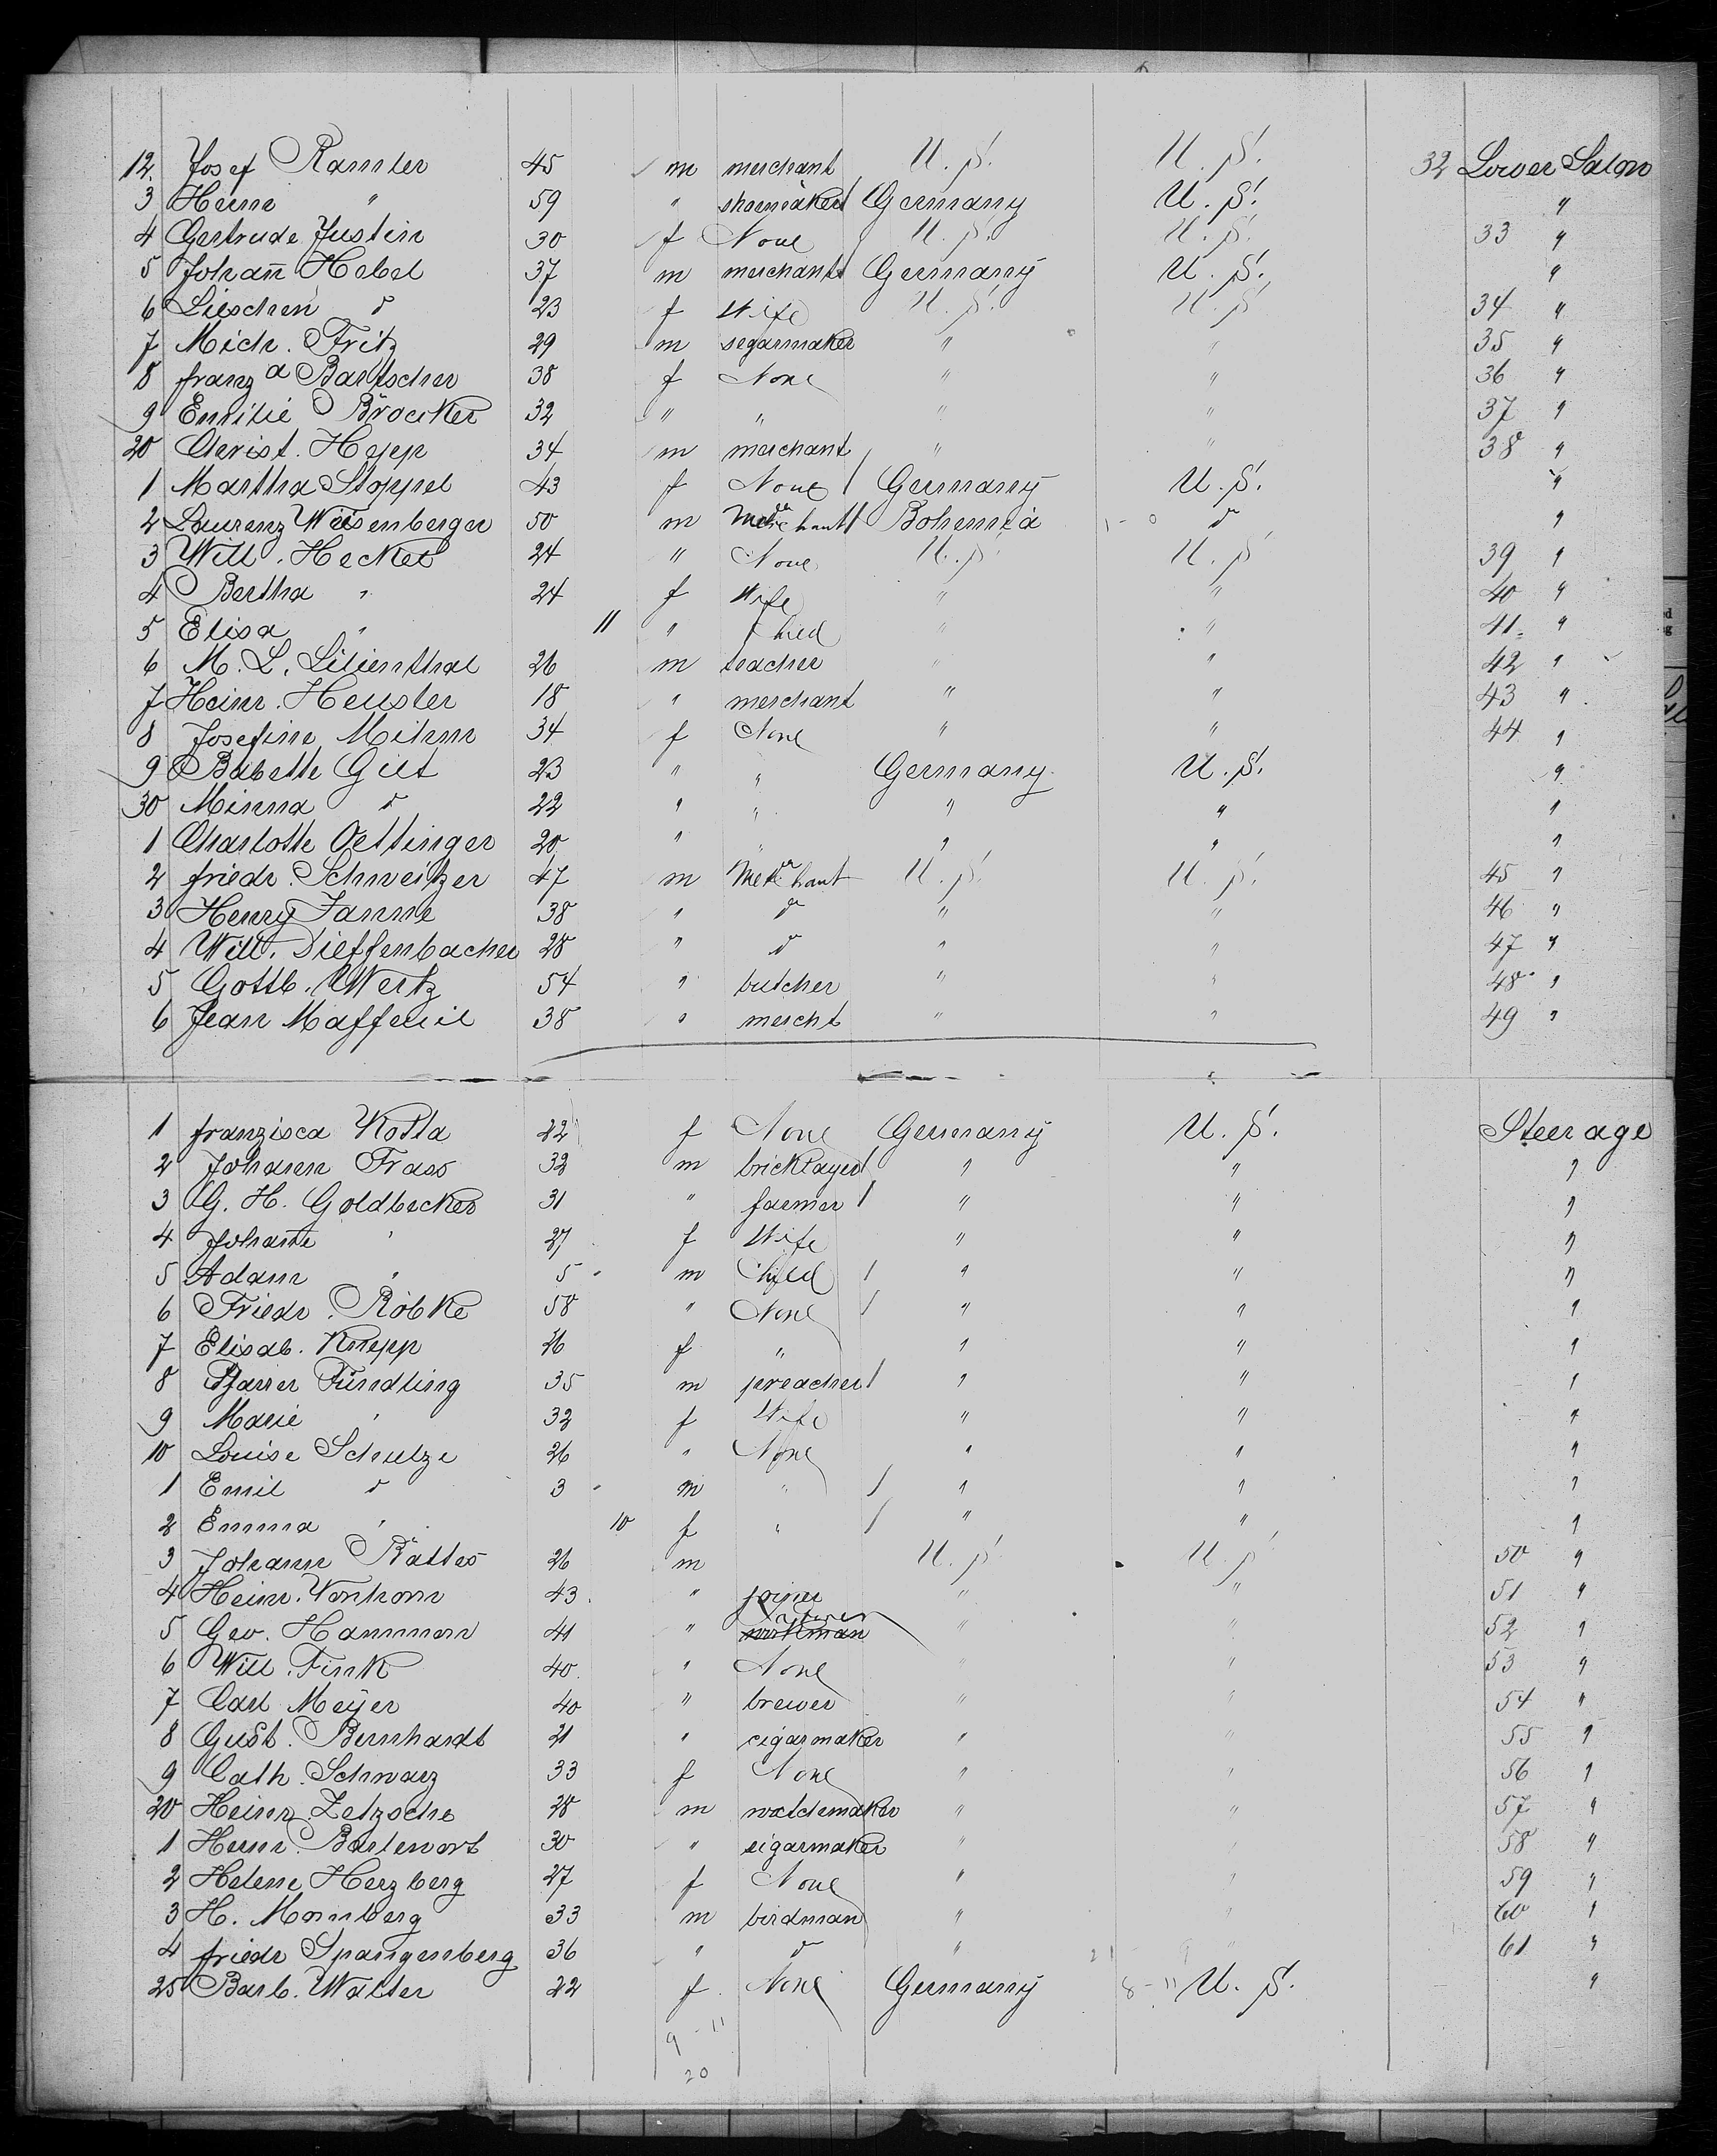 12. Josef Ramler 45 m merchant U. S. U. S. 32 Lower Salon
3 Heinr " 59 " shoemaker / Germany U. S. "
4 Gertrude Justin 30 f None U. S. U. S. 33 "
5 Johañ Hebel 37 m merchant / Germany U. S. "
6 Lieschen d 23 f Wife U. S. U. S 34 "
7 Mich. Fritz 29 m segarmaker " " 35 "
8 franz a Bartscher 38 f None " " 36 "
9 Emilie Broecker 32 " " " " 37 "
20 Christ. Hepp 34 m merchant " " 38 "
1 Martha Stoppel 43 f None / Germany U. S. "
2 Laurenz Wiesenberger 50 m Merchant / Bohemia d "
3 Will. Heckel 24 " None U. S U. S 39 "
4 Bertha " 24 f Wife " " 40 "
5 Elisa " 11 " Child " " 41 "
6 M. L. Lilienthal 26 m teacher " " 42 "
7 Heinr. Heusler 18 " merchant " " 43 "
8 Josefine Mihm 34 f None " " 44 "
9 Babette Gut 23 " " Germany U. S. "
30 Minna d 22 " " " " "
1 Charlotte Oettinger 20 " " " " "
2 friedr. Schweitzer 47 m Merchant U. S. U. S. 45 "
3 Henry Janne 38 " d " " 46 "
4 Will. Dieffenbacher 28 " d " " 47 "
5 Gottlb. Wertz 54 " butcher " " 48 "
6 Jean 38 " mercht " " 49 "
1 franzisca Kotta 22 f None Germany U. S. Steerage
2 Johann Frass 32 m bricklayer / " " "
3 G. H. Goldbecker 31 " farmer / " " "
4 Johañe " 27 f Wife " " "
5 Adam " 5 m Child / " " "
6 Friedr. Röbke 58 " None / " " "
7 Elisab. Knepp 26 f " " " "
8 Pfarrer Fündling 35 m preacher / " " "
9 Marie " 32 f Wife " " "
10 Louise Schulze 26 " None " " "
1 Emil d 3 m " / " " "
2 Emma " 10 f " / " " "
3 Johann Rattes 26 m U. S. U. S 50 "
4 Heinr. Vonhorn 43 " joiner " " 51 "
5 Geo. Hammann 41 " workman " " 52 "
6 Will. Fink 40 " None " " 53 "
7 Carl Meyer 40 " brewer " " 54 "
8 Gust. Bernhardt 21 " cigarmaker " " 55 "
9 Cath. Schwarz 33 f None " " 56 "
20 Heinr. Zetzsche 28 m watchmaker " " 57 "
1 Heinr. Bartewort 30 " cigarmaker " " 58 "
2 Helene Herzberg 27 f None " " 59 "
3 H. Mannberg 33 m birdman " " 60 "
4 friedr Spangenberg 36 " d " " 61 "
25 Barb. Walter 22 f None Germany 8-11 U. S. "
9-11
20